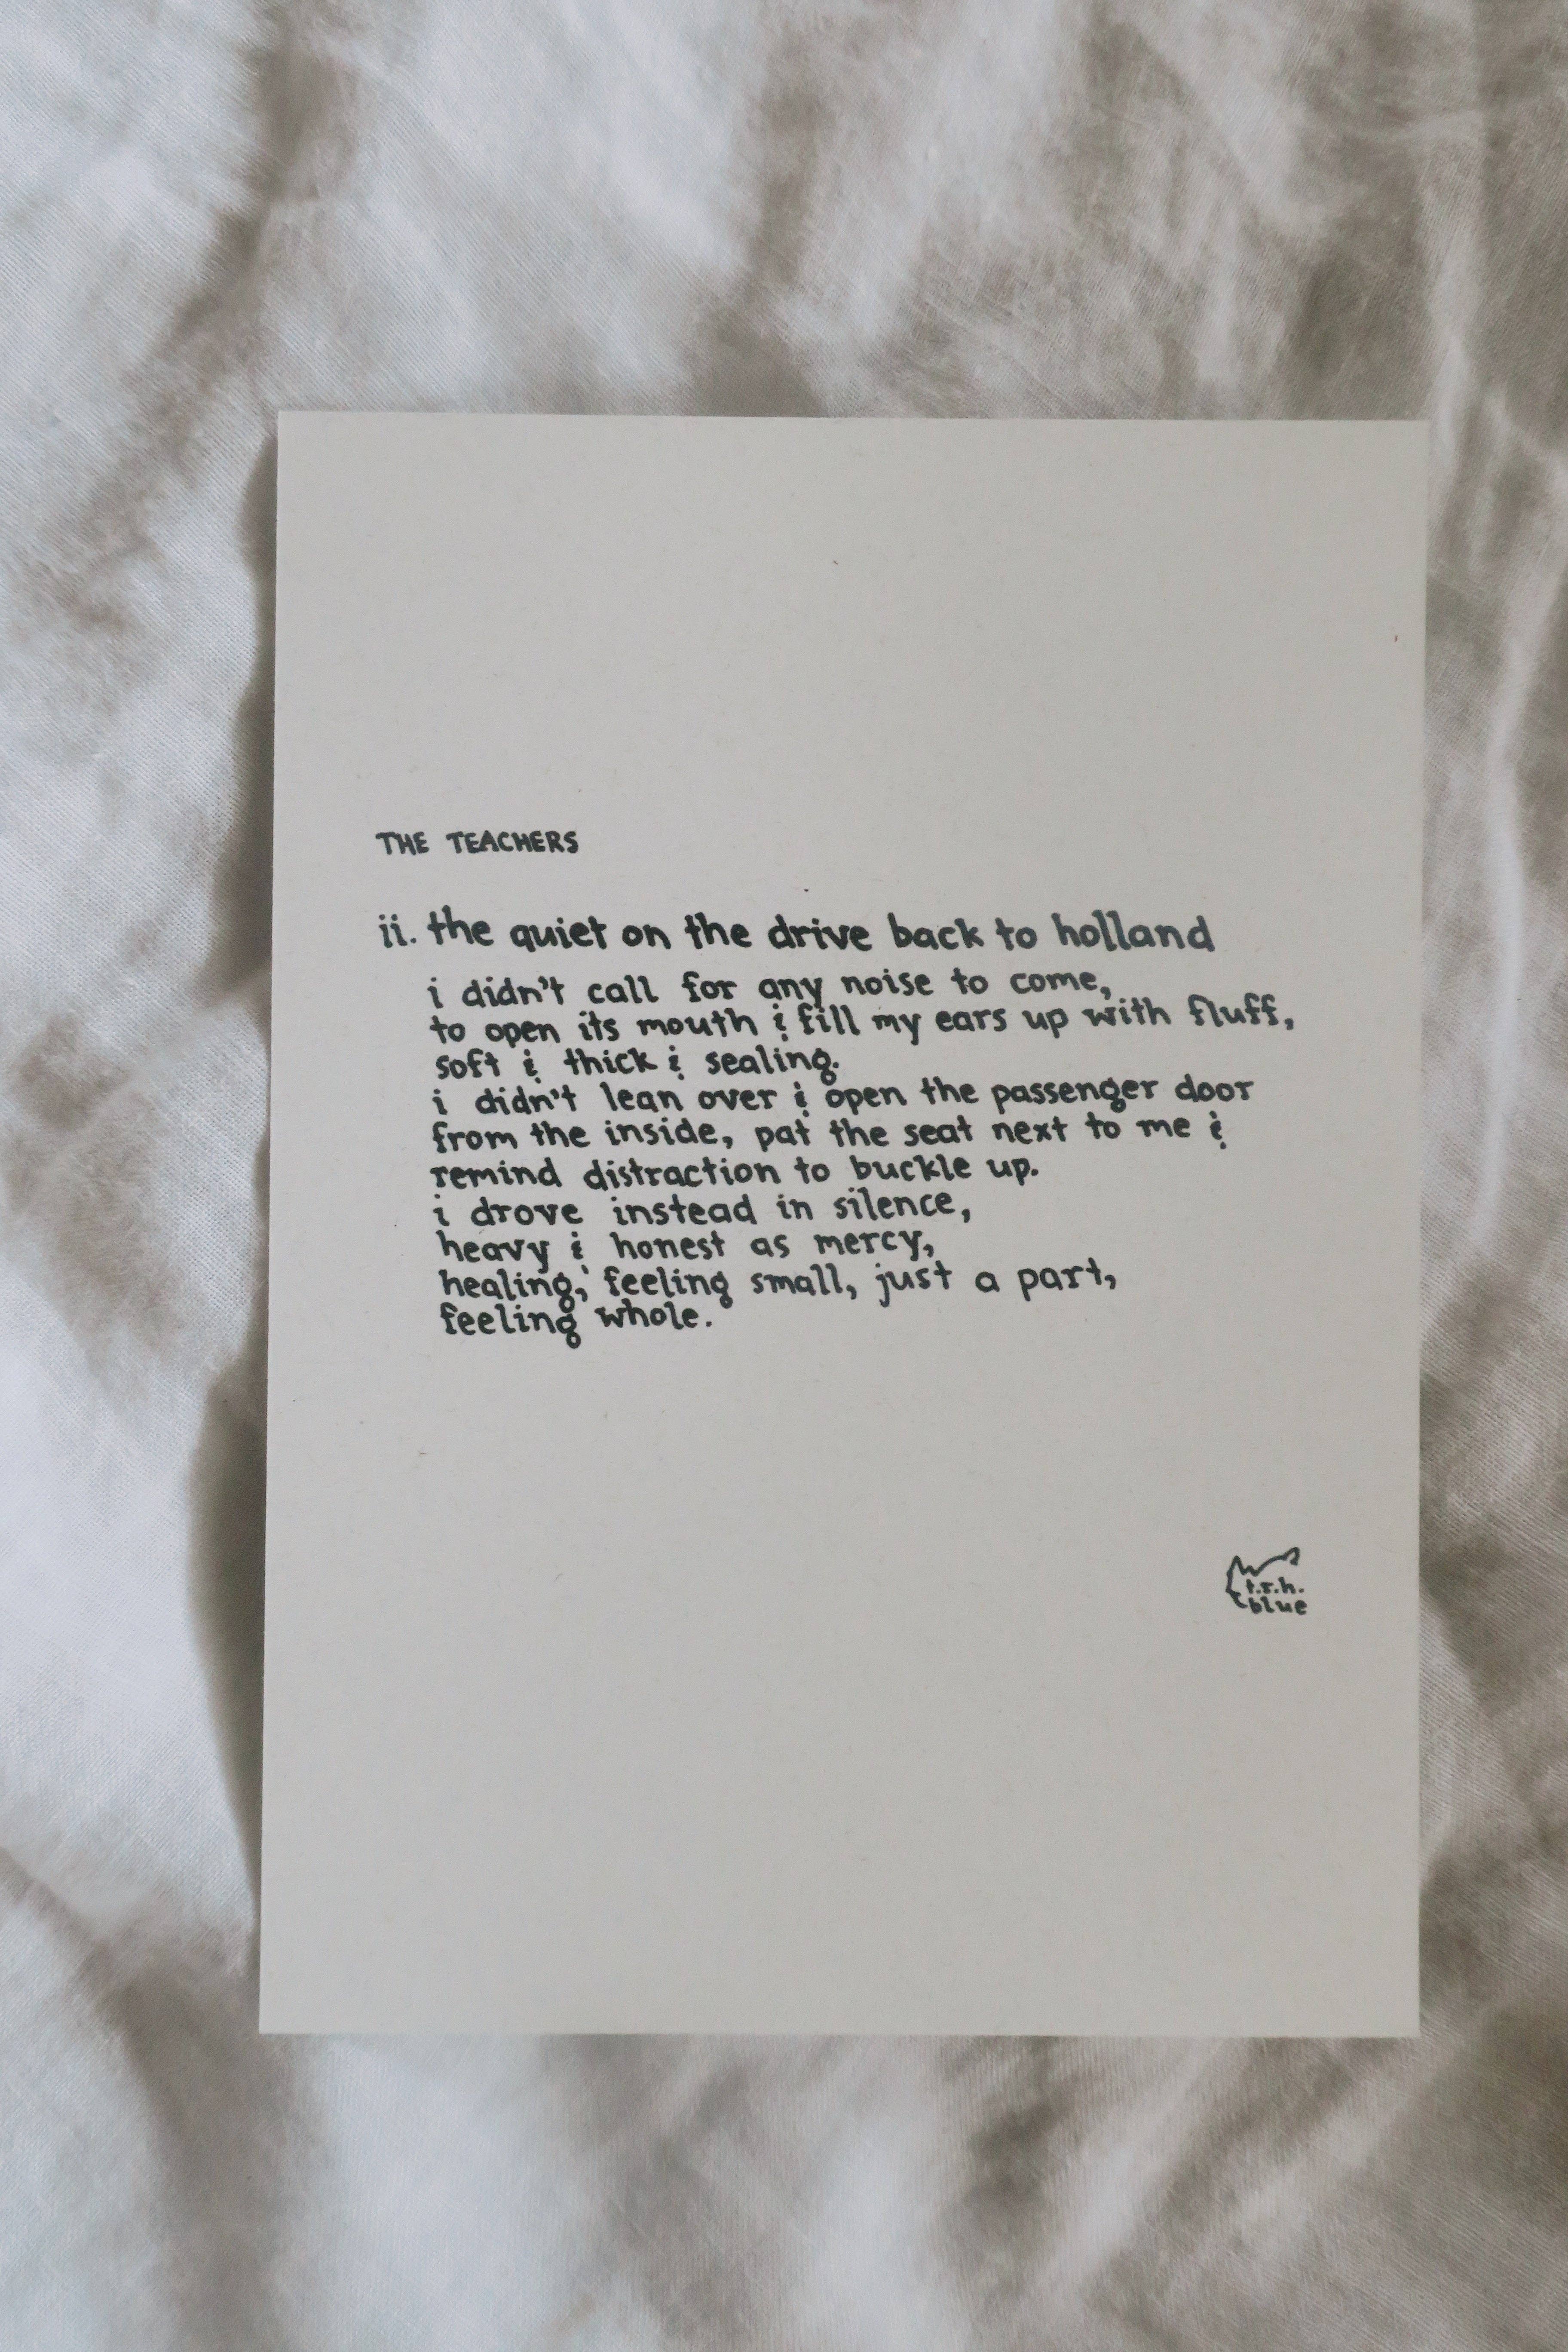 THE TEACHERS
ii. the quiet on the drive back to holland
i didn't call for any noise to come,
to open its mouth & fill my ears up with fluff,
soft & thick & sealing.
i didn't lean over & open the passenger door
from the inside, pat the seat next to me &
remind distraction to buckle up.
i drove instead in silence,
heavy & honest as mercy,
healing, feeling small, just a part,
feeling whole.
t.r.h.
blue